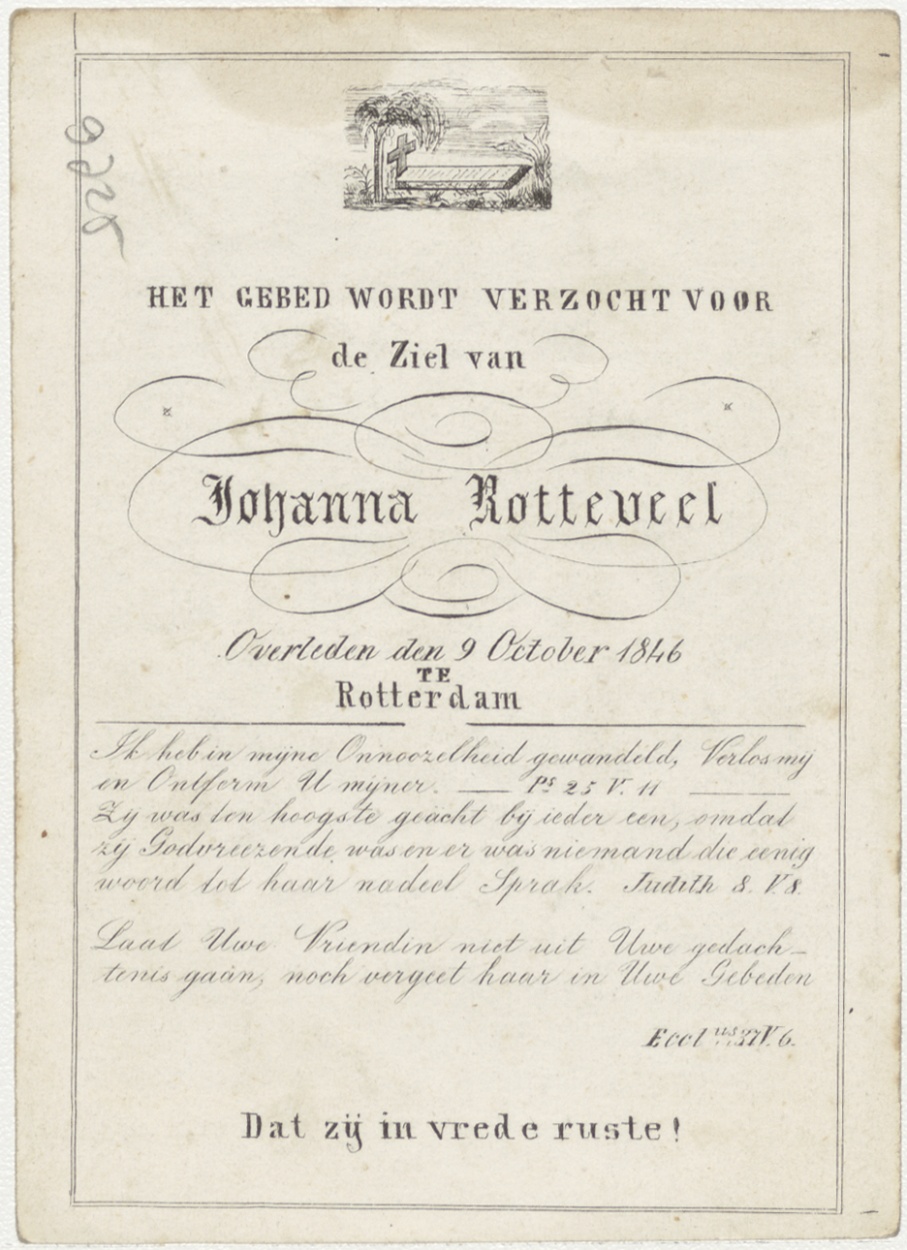 HET GEBED WORDT VERZOCHT VOOR
de Ziel van
Johanna Rotteveel
Overleden den 9 October 1846
TE
Rotterdam
Ik heb in mijne Onnoozelheid gewandeld, Verlos mij
en Ontferm U mijner. — Ps 25 V. 11 —
Zij was ten hoogste geacht bij ieder een, omdat
zij Godvreezende was en er was niemand die eenig
woord tot haar nadeel Sprak. Judith 8. V8.
Laat Uwe Vriendin niet uit Uwe gedach-
tenis gaan, noch vergeet haar in Uwe Gebeden
Eccl us 37V. 6.
Dat zij in vrede ruste!